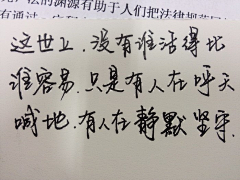 法的渊源有助于人们把法律规范
这世上,没有谁活得比
谁容易,只是有人在呼天
喊地,有人在静默坚守.